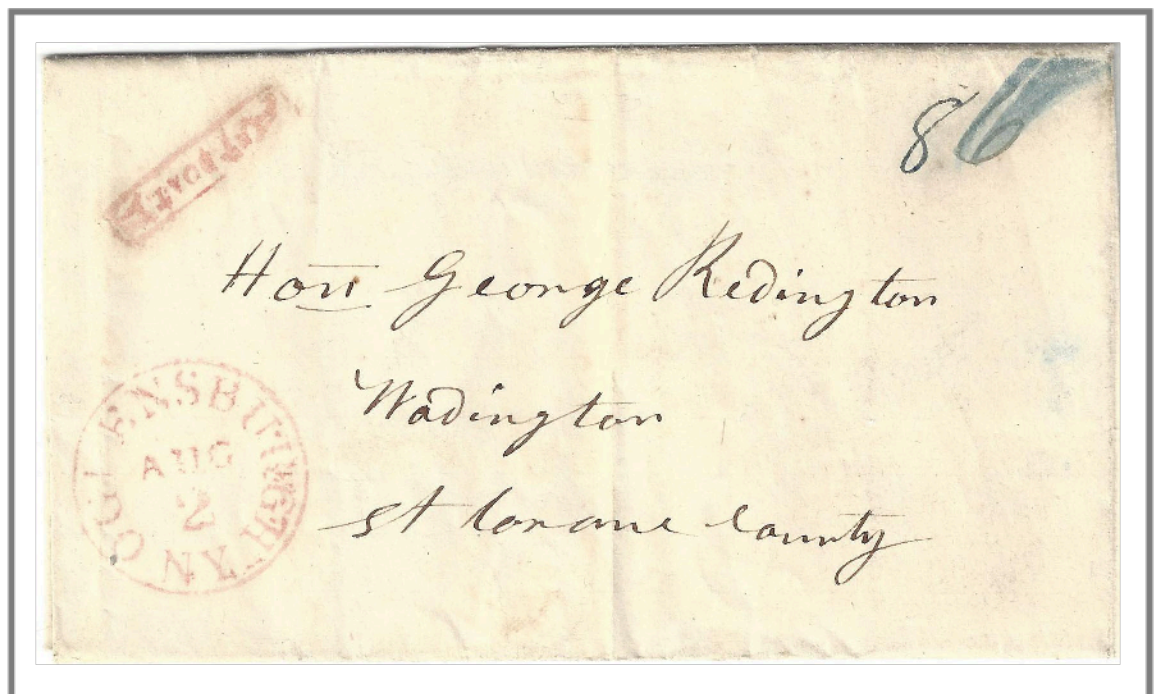 86
Hon George Redington
Wadington
St Lorance County
OGDENSBURGH N.Y.
AUG
2